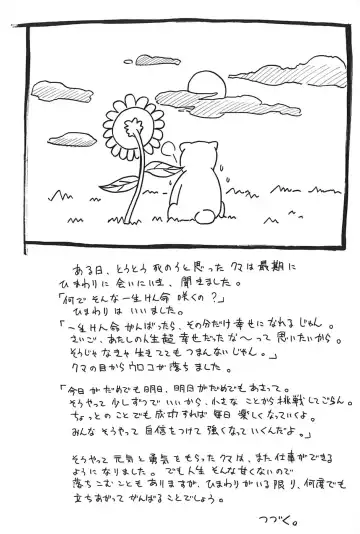 ある日、とうとう死のうと思ったクマは最期に
ひまわりに会いにいき、聞きました。
「何でそんな一生けん命 咲くの？」
ひまわりはいいました。
「一生けん命がんばったら、その分だけ幸せになれるじゃん。
さいご、あたしの人生超幸せだったな〜って思いたいから。
そうじゃなきゃ生きててもつまんないじゃん。」
クマの目からウロコが落ちました。
「今日がだめでも明日、明日がだめでもあさって。
そうやって少しずつでいいから、小さなことから挑戦してごらん。
ちょっとのことでも成功すれば毎日楽しくなっていくよ。
みんなそうやって自信をつけて強くなっていくんだよ。」
そうやって元気と勇気をもらったクマは、また仕事ができる
ようになりました。でも人生そんな甘くないので
落ちこむこともありますが、ひまわりがいる限り、何度でも
立ちあがってがんばることでしょう。
つづく。